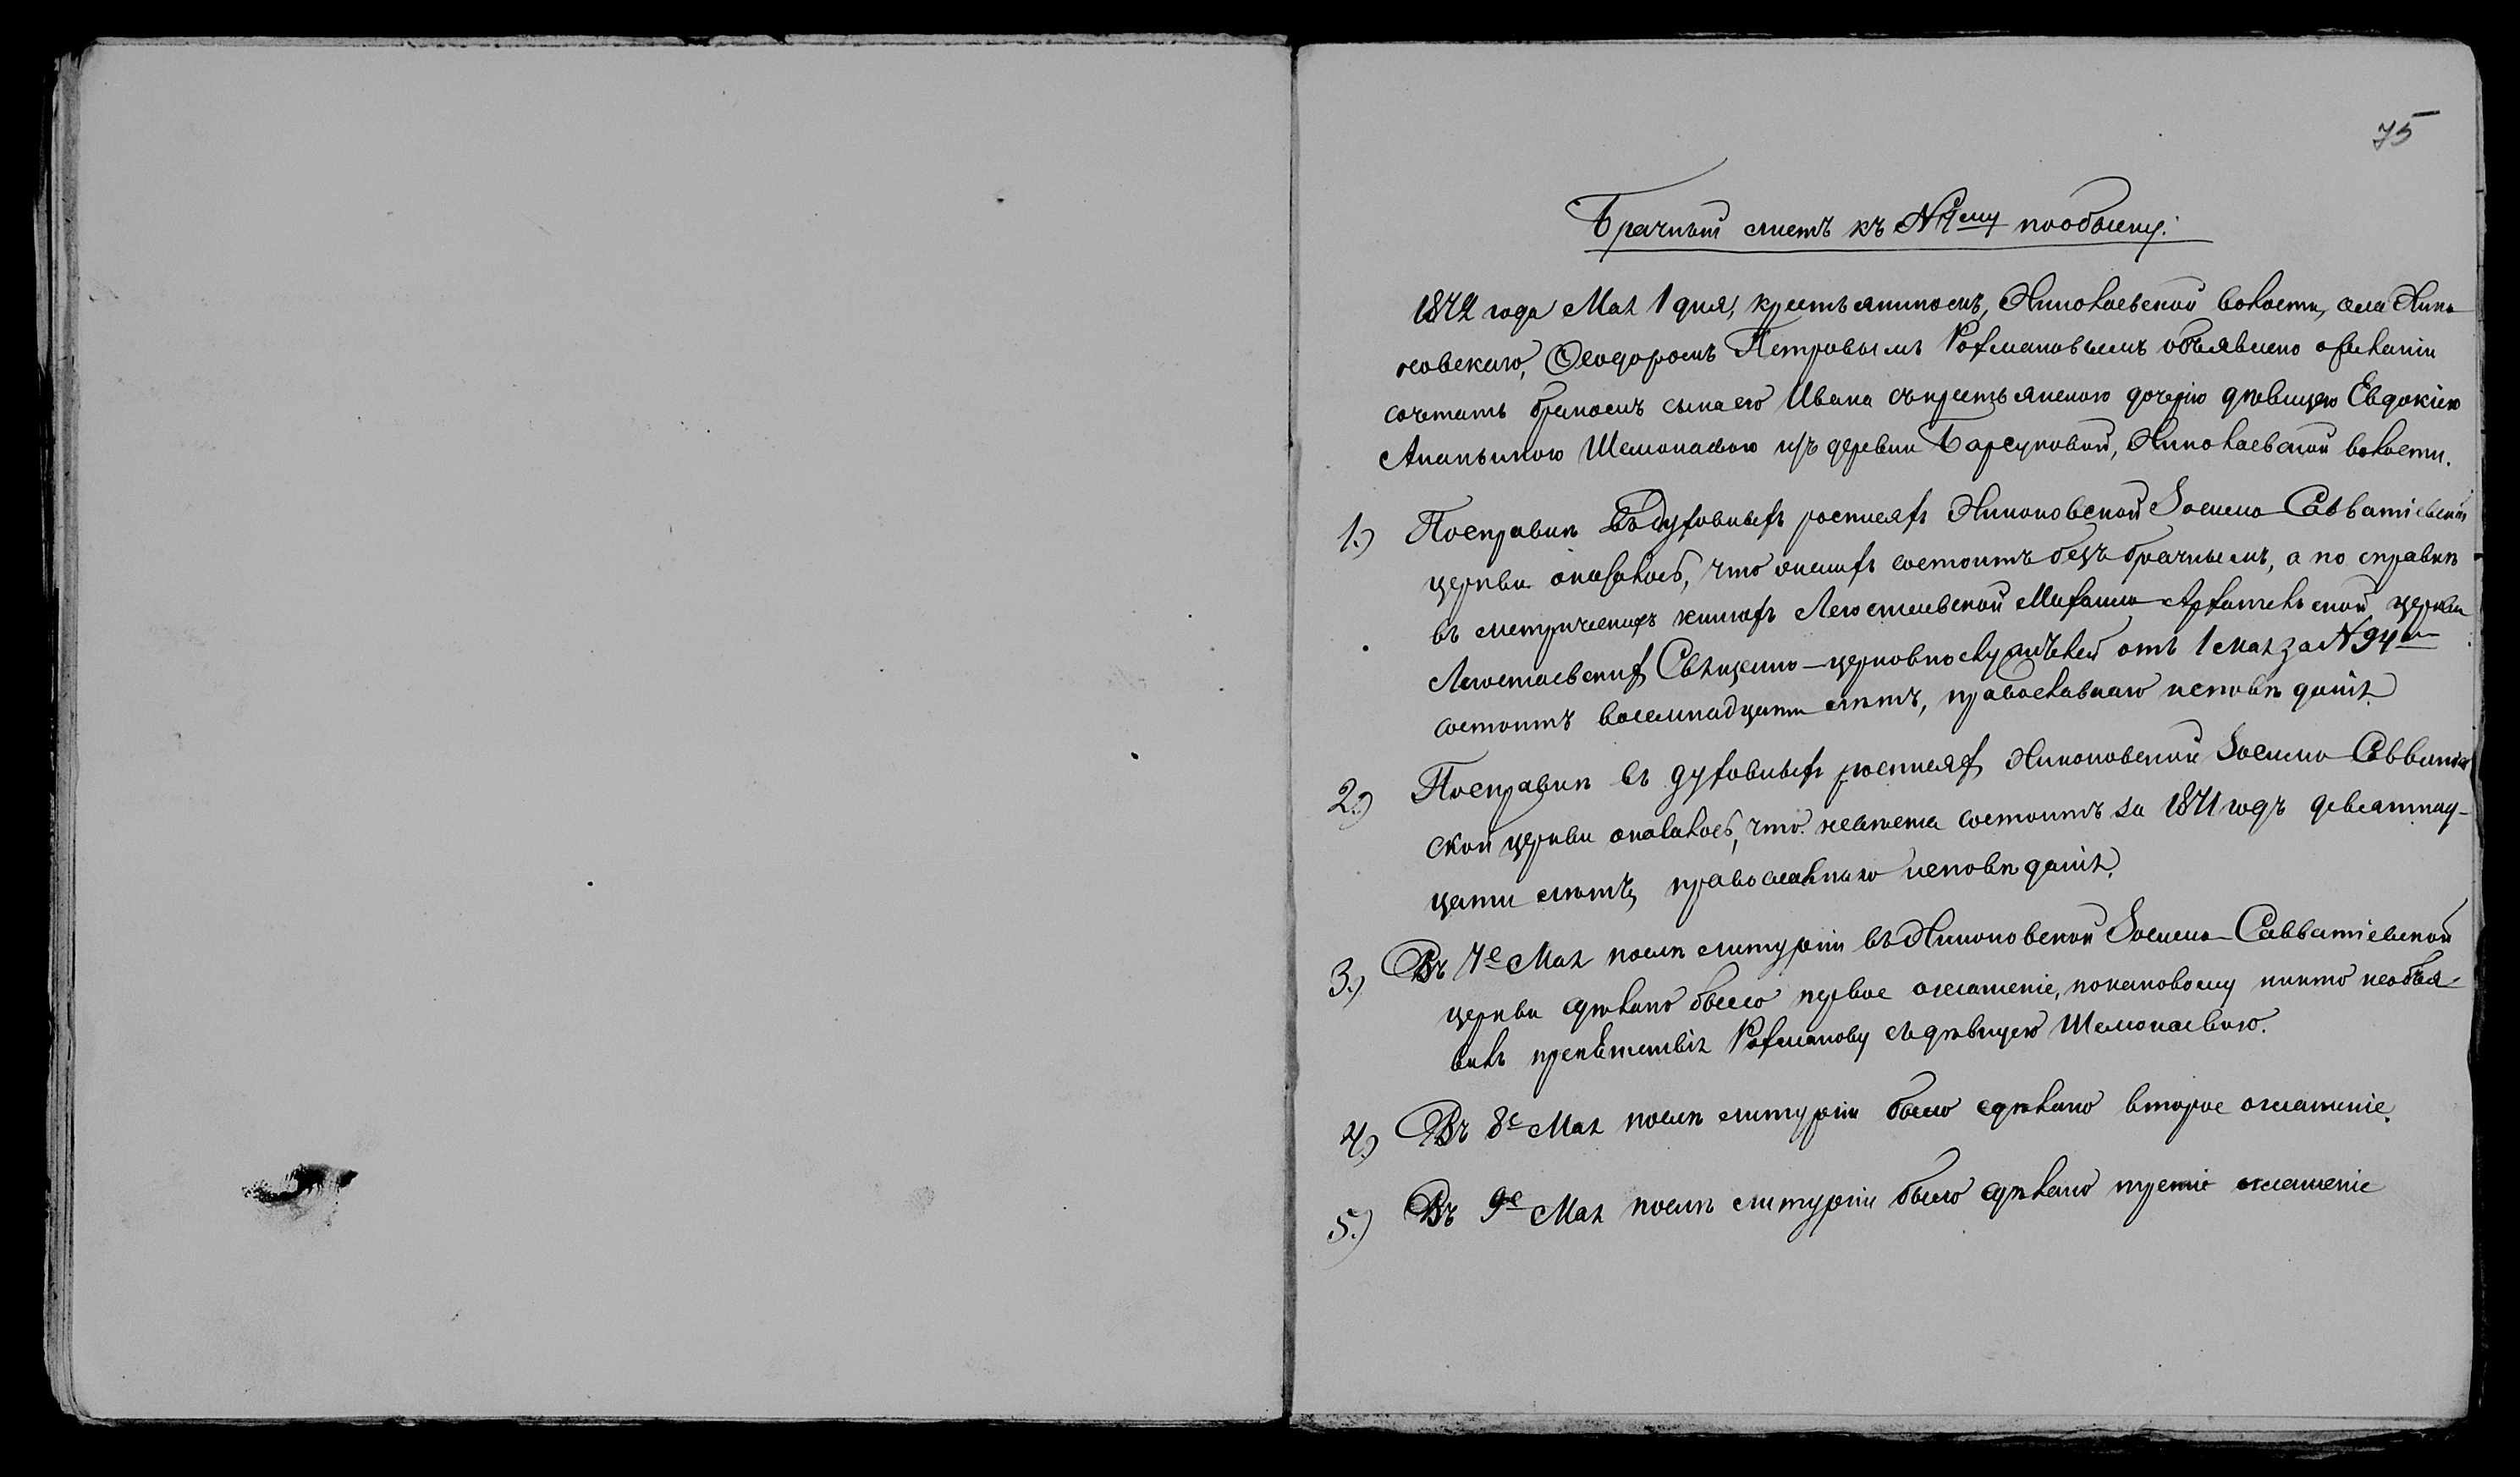 75
Брачный листъ къ №1ему пообыску:
1872 года Мая 1 дня, крестьяниномъ, Николаевской волости, села Нико
новскаго, Ѳеодоромъ Петровымъ Рохмановымъ объявлено ожеланіи
сочетать бракомъ сына его Ивана съкрестьянскою дочерію дѣвицею Евдокіею
Ананьиною Шемонаевою изъ деревни Барсуковой, Николаевской волости.
1.) Посправкѣ Въдуховныхъ росписяхъ Никоновской Зосимо-Савватіевской
церкви оказалось, что женихъ состоитъ безъ брачнымъ, а по справкѣ
въ метрическихъ книгахъ Легостаевской Михаило-Архательской церкви
Легостаевских Священно-церковнослужителей отъ 1 мая за №94мъ
состоитъ восемнадцати лѣтъ, православнаго исповѣданія.
2.) Посправкѣ въ духовныхъ росписях Никоновской Зосимо-Савватіев
ской церкви оказалось, что невѣста состоитъ за 1871 годъ девятнад-
цати лѣтъ, православнаго исповѣданія.
3.) Въ 7е Мая послѣ литургіи въ Никоновской Зосимо-Савватіевской
церкви сдѣлано было первое оглашеніе, покаковому никто необъя-
вилъ препятствія Рохманову съдѣвицею Шемонаевою.
4.) Въ 8е Мая послѣ литургіи было сдѣлано второе оглашеніе.
5.) Въ 9е Мая послѣ литургіи было сдѣлано третіе оглашеніе